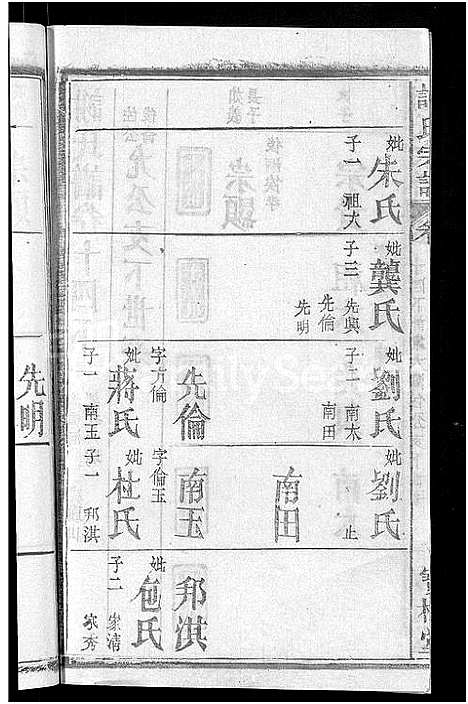 妣朱氏
子一 祖大
妣龔氏
子三 先與
先倫
先明
妣劉氏
子二 南太
南田
妣劉氏
止
南田
先倫
字方倫
妣蔣氏
子一 南玉
南玉
字倫玉
妣杜氏
子一 邦淇
邦淇
妣包氏
子二 家清
家秀
先明